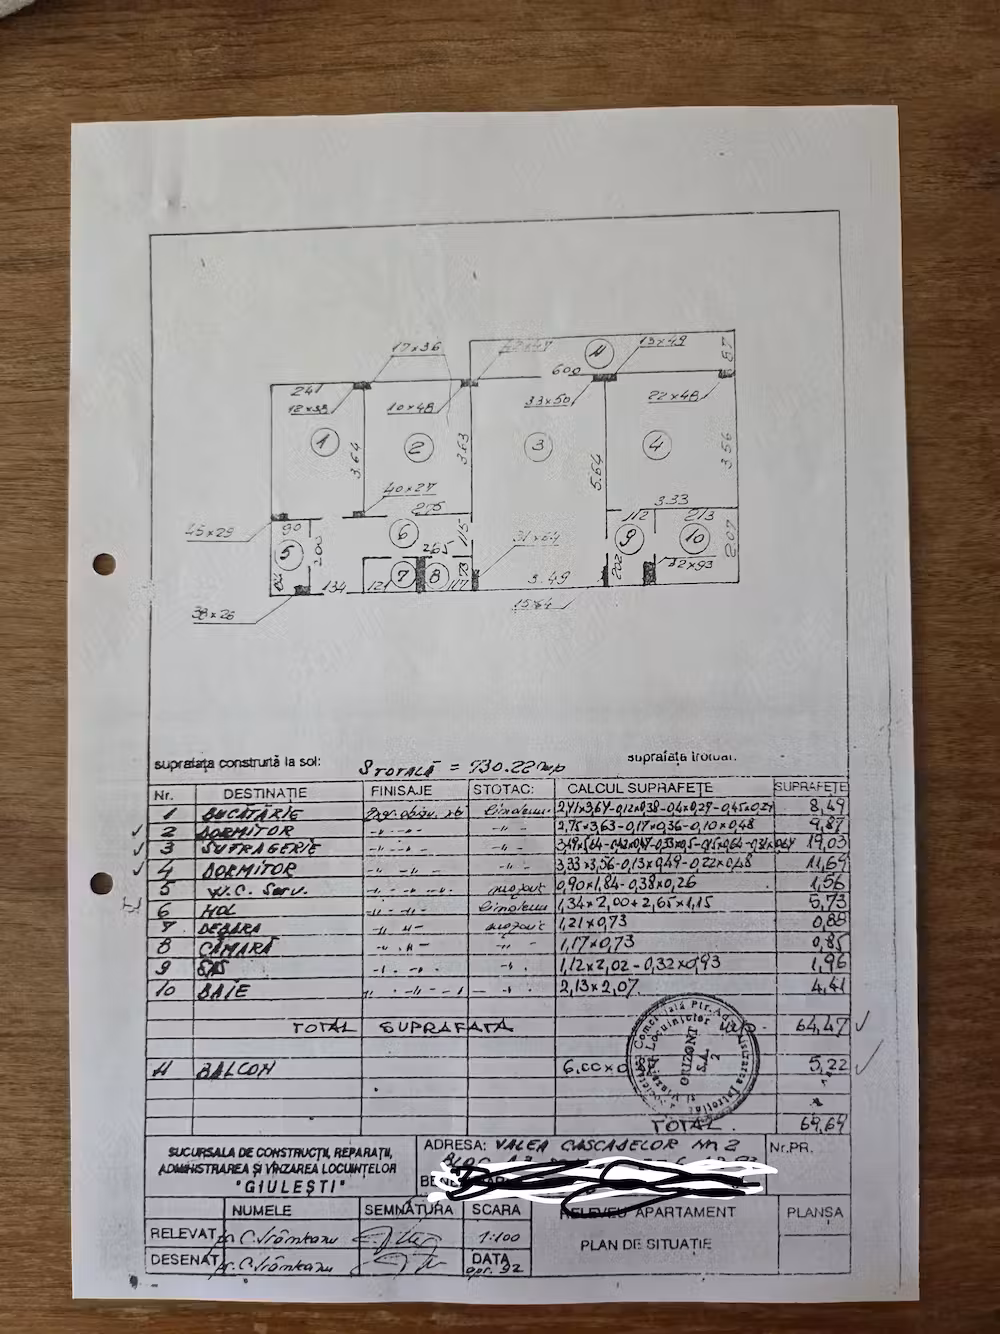 17x36
42x47
11
13x49
87
241
600
12x38
10x48
33x50
22x48
1
2
3
4
3.64
3.63
5.64
3.56
40x27
275
3.33
45x29
90
6
115
31x64
112
213
5
200
9
10
207
265
202
32x93
84
134
121
7
8
73
117
3.49
38x26
15x64
suprafața construită la sol:
S TOTALĂ = 730.22 mp
suprafața trotuar:
Nr. DESTINAȚIE FINISAJE STOTAC: CALCUL SUPRAFEȚE SUPRAFEȚE
1 BUCĂTĂRIE linoleum 2,41x3,64-0,12x0,38-0,4x0,27-0,45x0,29 8,49
2 DORMITOR -"- -"- 2,75x3,63-0,17x0,36-0,10x0,48 9,87
3 SUFRAGERIE -"- -"- 3,49x5,64-0,42x0,47-0,33x0,5-0,15x0,64-0,31x0,64 19,03
4 DORMITOR -"- -"- 3,33x3,56-0,13x0,49-0,22x0,48 11,69
5 W.C. Serv. -"- mozaic 0,90x1,84-0,38x0,26 1,56
6 HOL -"- linoleum 1,34x2,00+2,65x1,15 5,73
7 DEBARA -"- mozaic 1,21x0,73 0,88
8 CĂMARĂ -"- -"- 1,17x0,73 0,85
9 SAS -"- -"- 1,12x2,02-0,32x0,93 1,96
10 BAIE -"- -"- 2,13x2,07 4,41
TOTAL SUPRAFAȚA 64,47
11 BALCON 6,00x0 5,22
TOTAL 69,69
SUCURSALA DE CONSTRUCȚII, REPARAȚII,
ADMINISTRAREA ȘI VÎNZAREA LOCUINȚELOR
"GIULEȘTI"
ADRESA: VALEA CASCADELOR Nr. 2
Nr.PR.
NUMELE SEMNĂTURA SCARA RELEVEU APARTAMENT PLANȘA
RELEVAT 1:100
PLAN DE SITUAȚIE
DESENAT DATA
apr. 92